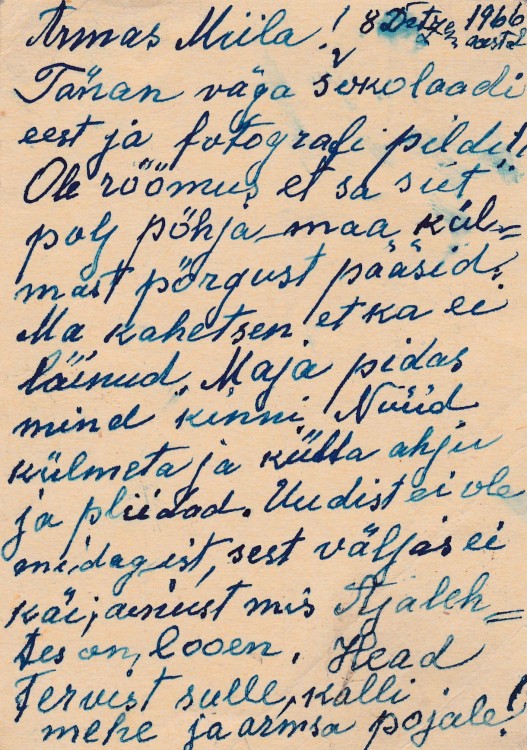 Armas Miila! 8 Detze. 1966
aastal
Tänan väga šokolaadi
eest ja fotografi pildi
Ole röömus, et sa siit
polj pöhja-maa kül=
mast pörgust pääsid.
Ma kahetsen et ka ei
läinud. Maja pidas
mind kinni. Nüüd
külmeta ja kütta ahju
ja pliidad. Uudist ei ole
midagist, sest väljas ei
käi, ainust mis Ajaleh=
tes on, looen. Head
Tervist sulle, kalli
mehe ja armsa pojale!